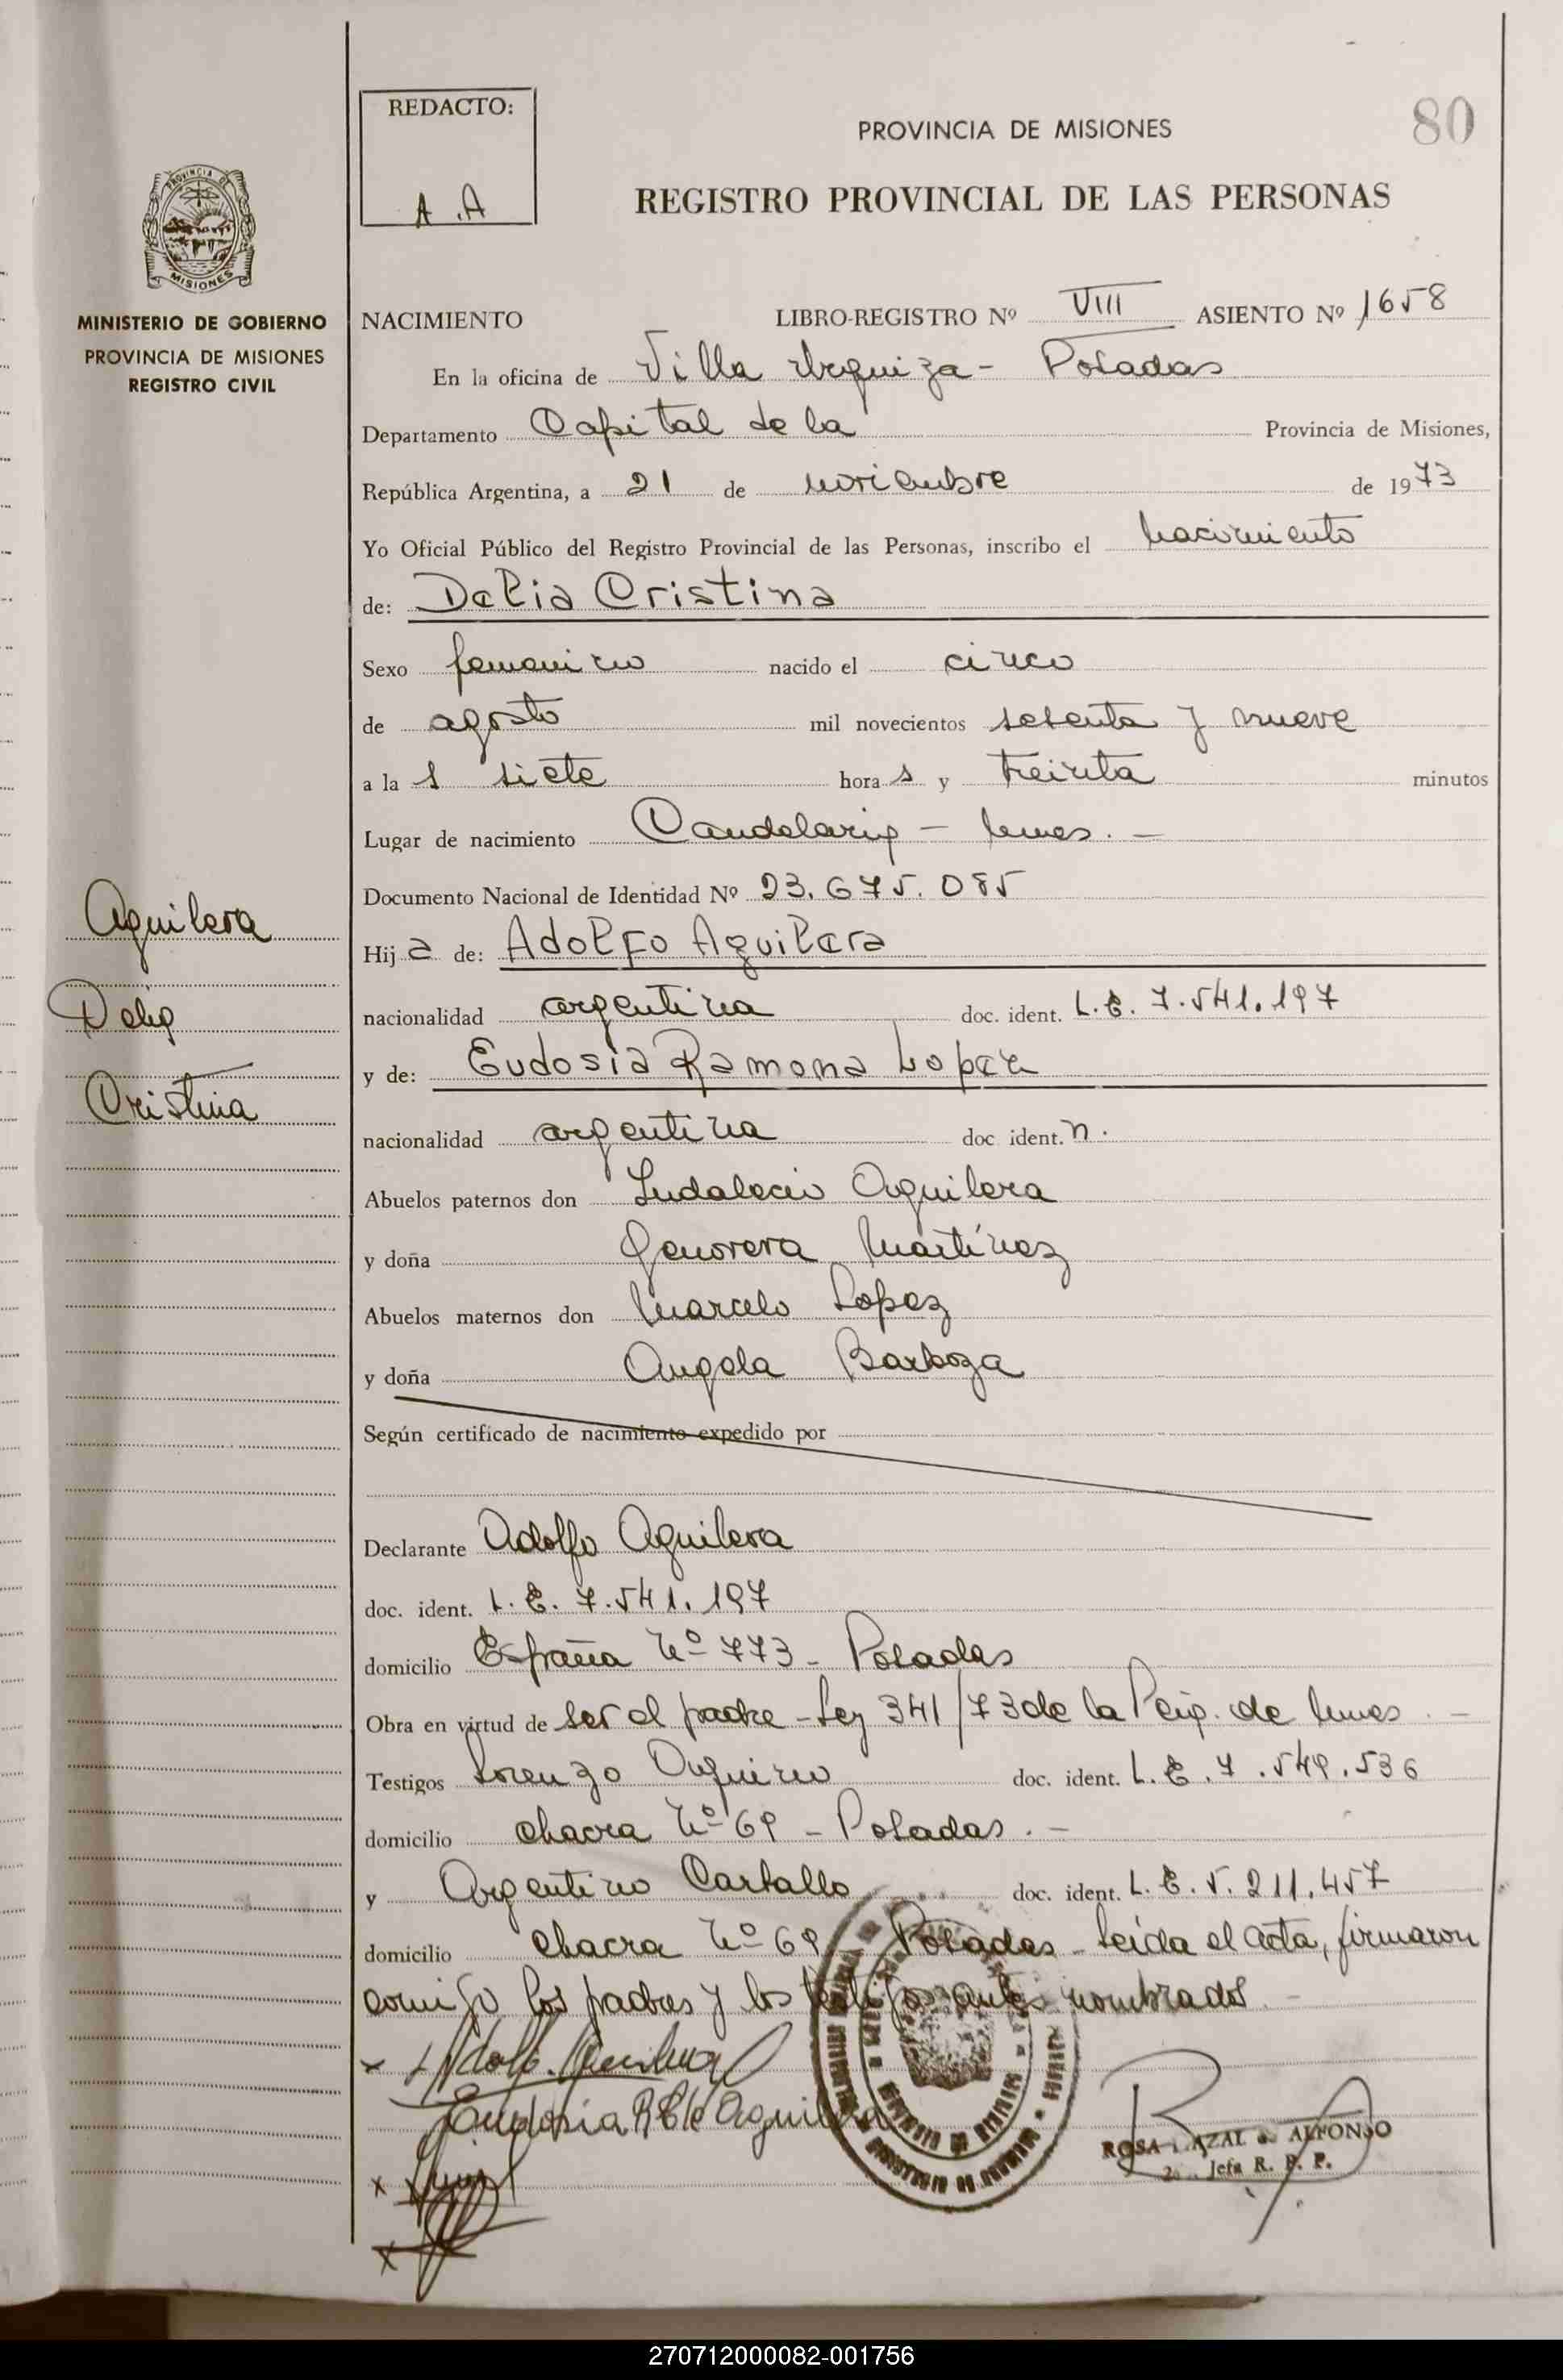 REDACTO:
A.A
80
PROVINCIA DE MISIONES
REGISTRO PROVINCIAL DE LAS PERSONAS
PROVINCIA DE
MISIONES
MINISTERIO DE GOBIERNO
PROVINCIA DE MISIONES
REGISTRO CIVIL
NACIMIENTO LIBRO-REGISTRO Nº VIII ASIENTO Nº 1658
En la oficina de Villa Urquiza - Posadas
Departamento Capital de la Provincia de Misiones,
República Argentina, a 21 de noviembre de 1973
Yo Oficial Público del Registro Provincial de las Personas, inscribo el nacimiento
de: Delia Cristina
Sexo femenino nacido el cinco
de agosto mil novecientos sesenta y nueve
a las siete horas y treinta minutos
Lugar de nacimiento Candelaria - Mnes. -
Documento Nacional de Identidad Nº 23.675.085
Aguilera
Delia
Cristina
Hija de: Adolfo Aguilera
nacionalidad argentina doc. ident. L.E. 7.541.197
y de: Eudosia Ramona Lopez
nacionalidad argentina doc. ident. n.
Abuelos paternos don Indalecio Aguilera
y doña Genoveva Martínez
Abuelos maternos don Marcelo Lopez
y doña Angela Barboza
Según certificado de nacimiento expedido por
Declarante Adolfo Aguilera
doc. ident. L.E. 7.541.197
domicilio España Nº 773 - Posadas
Obra en virtud de ser el padre - Ley 341/73 de la Pcia. de Mnes. -
Testigos Lorenzo Aquino doc. ident. L.E. 7.549.536
domicilio chacra Nº 69 - Posadas. -
y Argentino Carballo doc. ident. L.E. 5.211.457
domicilio chacra Nº 69 Posadas - Leída el acta, firmaron
conmigo los padres y los testigos antes nombrados -
x Adolfo Aguilera
Eudosia R L de Aguilera
x
x
ROSA AZAL de ALFONSO
Jefa R. P. P.
270712000082-001756